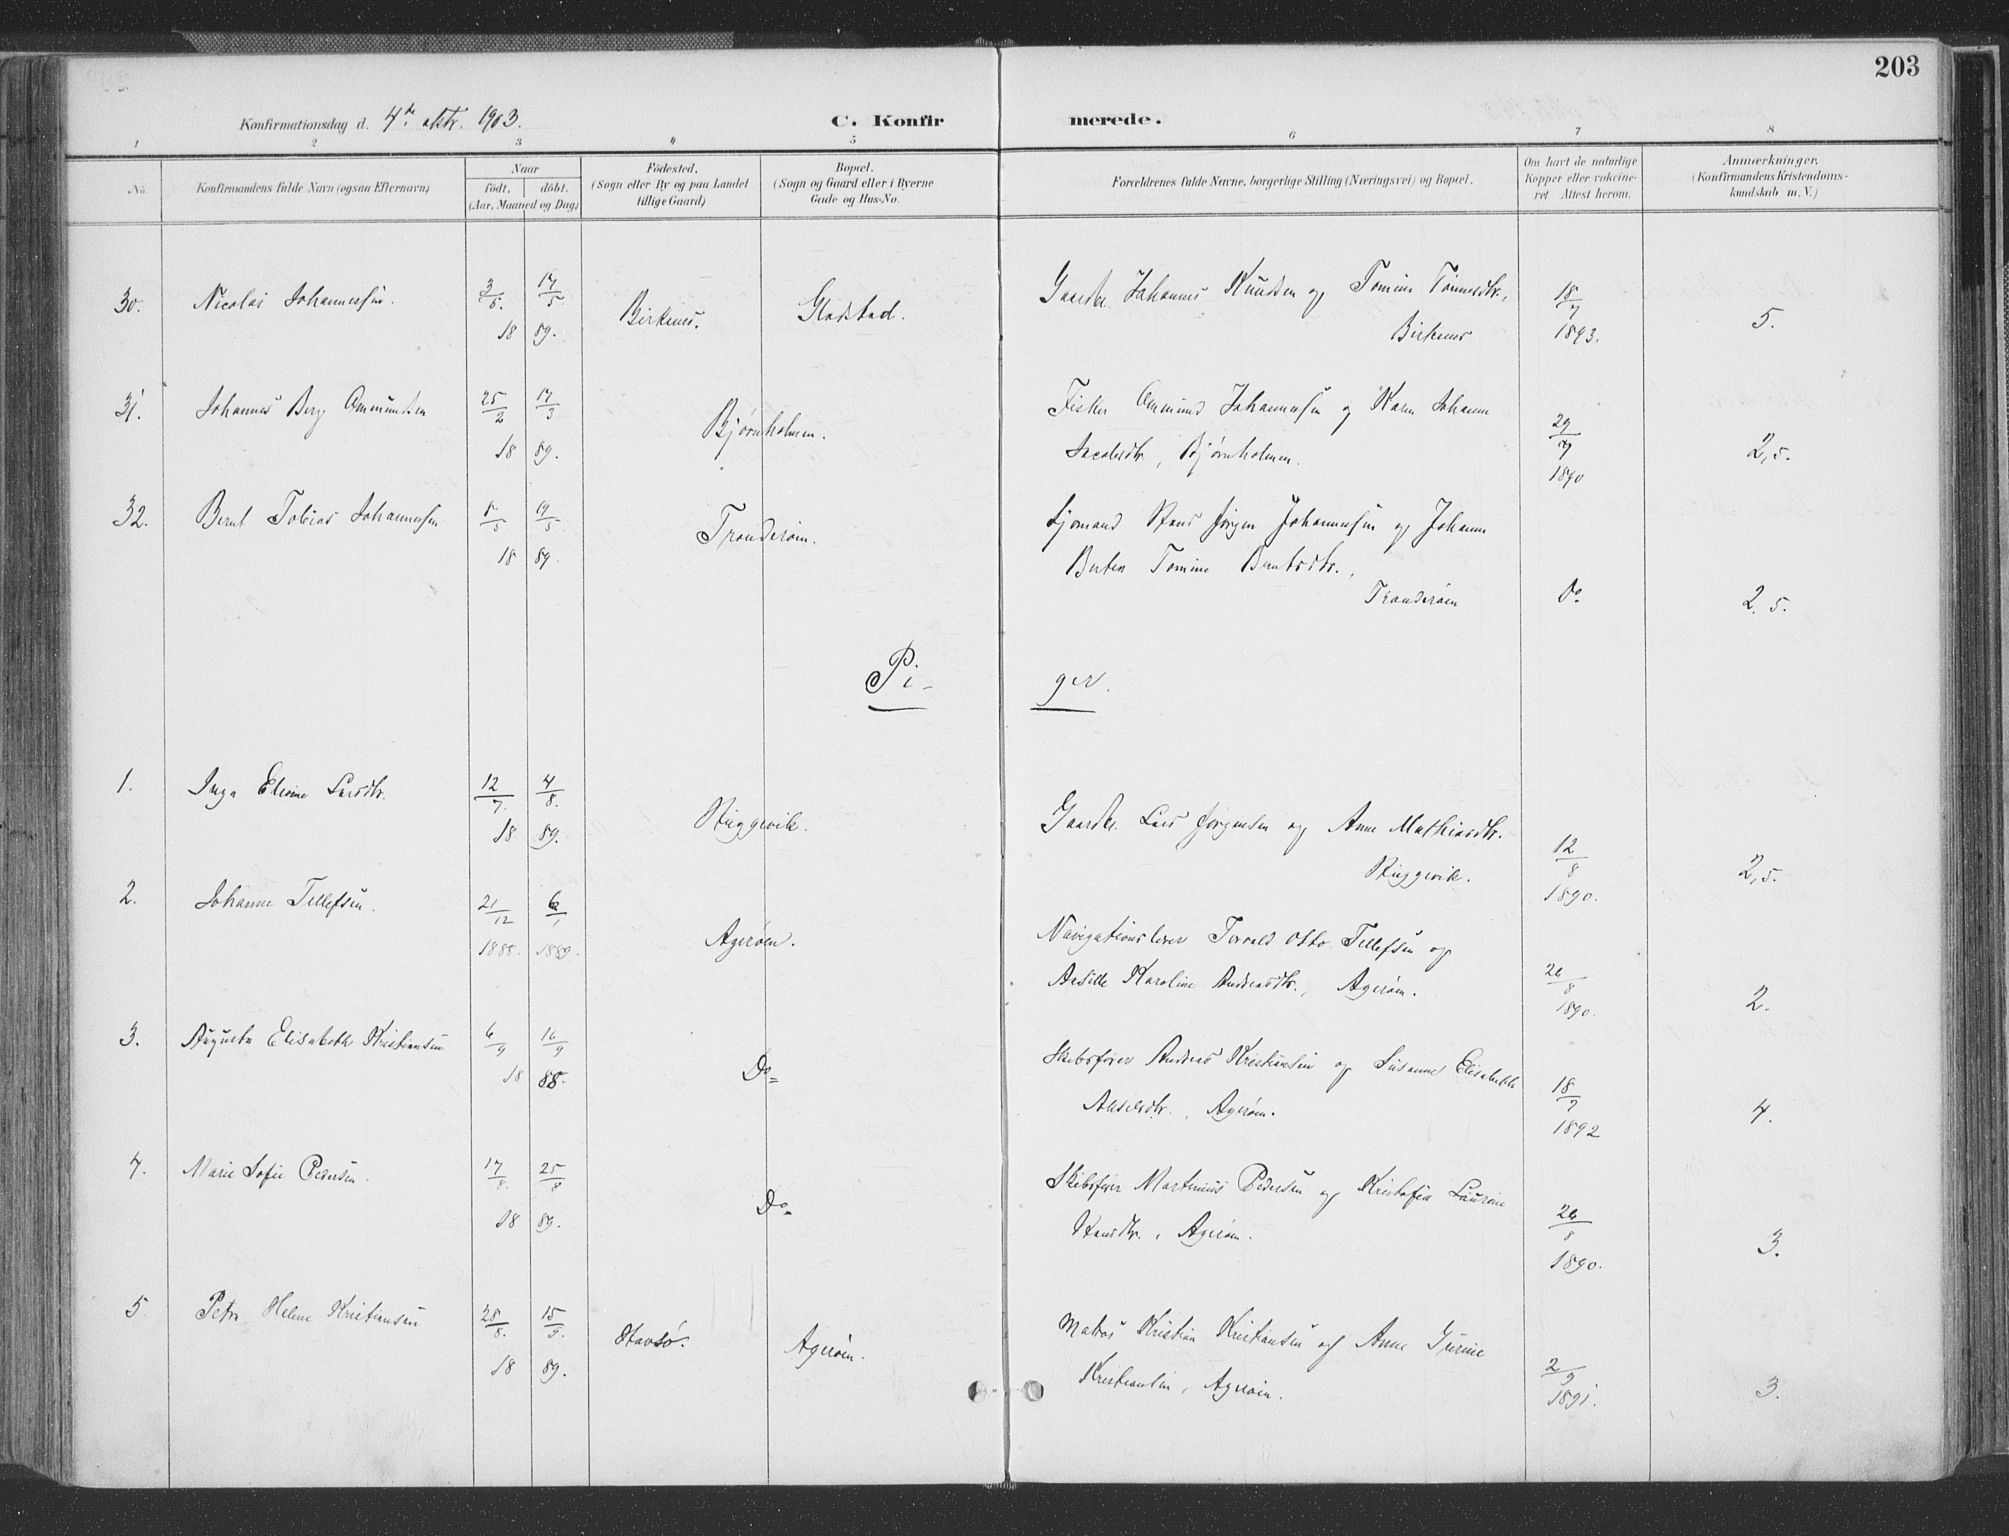 203
Konfirmationsdag d. 4de oktr. 1903.
C. Konfirmerede.
1 2 3 4 5 6 7 8
No.
Konfirmandens fulde Navn (ogsaa Efternavn)
Naar
födt. döbt.
(Aar, Maaned og Dag)
Födested.
(Sogn eller By og paa Landet
tillige Gaard)
Bopæl.
(Sogn og Gaard eller i Byerne
Gade og Hus-No.
Forældrenes fulde Navne, borgerlige Stilling (Næringsvei) og Bopæl.
Om havt de naturlige
Kopper eller vakcine-
ret Attest herom.
Anmærkninger.
(Konfirmandens Kristendoms-
kundskab m. V.)
30. Nicolai Johannessen. 3/5. 17/5 18 89. Birkenes. Gladstad. Gaardbr. Johannes Knudsen og Tomine Tönnesdtr.,
Birkenes 18/7 1893. 5.
31. Johannes Berg Ommundsen 25/2 17/3 18 89. Bjørnholmen. Fisker Ommund Johannessen og Karen Johanne
Jacobsdtr, Bjørnholmen. 29/7 1890 2,5.
32. Bernt Tobias Johannessen 8/5 19/5 18 89. Tronderöen. Sjømand Hans Jørgen Johannessen og Johanne
Tomine Berntsdtr.,
Tronderöen Do 2.5.
Pi-ger.
1. Inga Elvine Larsdtr. 12/7. 4/8. 18 89. Skiggevik. Gaardbr. Lars Jørgensen og Anne Mathiasdtr.
Skiggevik. 12/8 1890. 2,5.
2. Johanne Tellefsen. 21/12 6/1 1888. 1889. Ageröen. Navigationslærer Torvald Otto Tellefsen og
Karoline Andreasdtr., Ageröen. 26/8 1890. 2.
3. Augusta Elisabeth Kristiansen 6/9 16/9 18 88. Do= Skibsfører Andreas Kristiansen og Susanne Elisabeth
Akselsdtr., Ageröen. 18/7 1892 4.
4. Marie Sofie Pedersen. 17/8. 25/8 18 89. Do= Skibsfører Martinius Pedersen og Kristofia Laurine
Hansdtr., Ageröen. 26/8 1890. 3.
5 Petra Helene Kristiansen 28/8. 15/9. 18 89. Havsö. Ageröen. Matros Kristian Kristiansen og Anne Gurine
Kristiansen, Ageröen. 2/9 1891. 3.